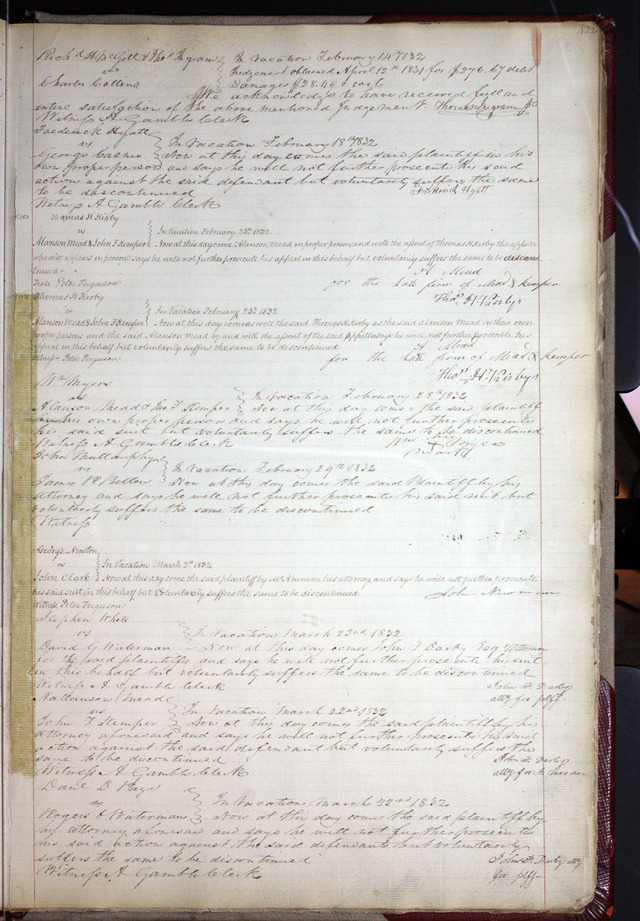 Rich.d H McGill & Thos Ingram } In Vacation February 14th 1832
vs Judgement obtained April 12th 1831 for $276.67 debt
Charles Collins Damages $28.49 & cost
We acknowledge to have received full and
entire satisfaction of the above mentioned Judgement Thomas Ingram
Witness A Gamble Clerk
Frederick Hyatt
vs } In Vacation February 18th 1832
George Casner Now at this day comes the said plaintiff in his
own proper person and says he will not further prosecute his said
action against the said defendant but voluntarily suffers the same
to be discontinued Frederick Hyatt
Witness A Gamble Clerk
Thomas H Kirby
vs } In Vacation February 23d. 1832
Alanson Mead & John F Kemper Now at this day come Alanson Mead in proper person and with the assent of Thomas H Kirby the appellee
who also appears in person says he will not further prosecute his appeal in this behalf but voluntarily suffers the same to be discon
tinued A Mead
Teste Peter Ferguson for the late firm of Mead & Kemper
Thomas H Kirby Thos. H. Kirby
vs } In Vacation February 23d. 1832
Alanson Mead & John F Kemper Now at this day comes as well the said Thomas H Kirby as the said Alanson Mead in their own
proper persons and the said Alanson Mead by and with the assent of the said Appellee says he will not further prosecute his
appeal in this behalf but voluntarily suffers the same to be discontinued A Mead
Witness Peter Ferguson for the late firm of Mead & Kemper
Thos. H. Kirby
Wm Myers
vs } In Vacation February 28th 1832
Alanson Mead & Jno F Kemper Now at this day comes the said plaintiff
in his own proper person and says he will not further prosecute
his said suit but voluntarily suffers the same to be discontinued
Witness A Gamble Clerk Wm Myers
John Mullanphy mark
vs } In Vacation February 29th 1832
James P Now at this day comes the said Plaintiff by his
attorney and says he will not further prosecute his said suit but
voluntarily suffers the same to be discontinued
Witness
George Newton
vs } In Vacation March 3d. 1832
John Clark Now at this day come the said plaintiff by Mr Newman his attorney and says he will not further prosecute
his said suit in this behalf but voluntarily suffers the same to be discontinued John Newman
Witness Peter Ferguson
Stephen White
vs } In Vacation March 22nd 1832
David G Waterman Now at this day comes John F Darby Esq Attorney
for the said plaintiffs and says he will not further prosecute his suit
in this behalf but voluntarily suffers the same to be discontinued
Witness A Gamble Clerk John F. Darby
Patterson Mead atty for plff
vs } In Vacation March 22nd 1832
John F Kemper Now at this day comes the said plaintiff by his
attorney aforesaid and says he will not further prosecute his said
action against the said defendant but voluntarily suffers the
same to be discontinued John F. Darby
Witness A Gamble Clerk atty for
Danl D Page
vs } In Vacation March 22nd 1832
Rogers & Waterman Now at this day comes the said plaintiff by
his attorney aforesaid and says he will not further prosecute
his said action against the said defendants but voluntarily
suffers the same to be discontinued John F. Darby atty
Witness A Gamble Clerk for plff